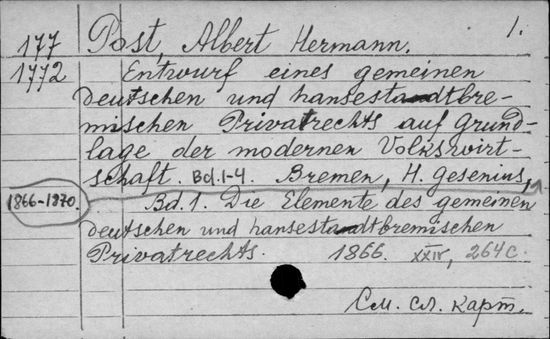 1.
177 Post, Albert Hermann.
1772 Entwurf eines gemeinen
deutschen und hansestadtbre-
mischen Privatrechts auf Grund-
lage der modernen Volkswirt-
schaft. Bd. 1-4. Bremen, H. Gesenius,
1866-1970.
Bd. 1. Die Elemente des gemeinen
deutschen und hansestadtbremischen
Privatrechts. 1866. XXIV, 264 с.
См. сл. карт.